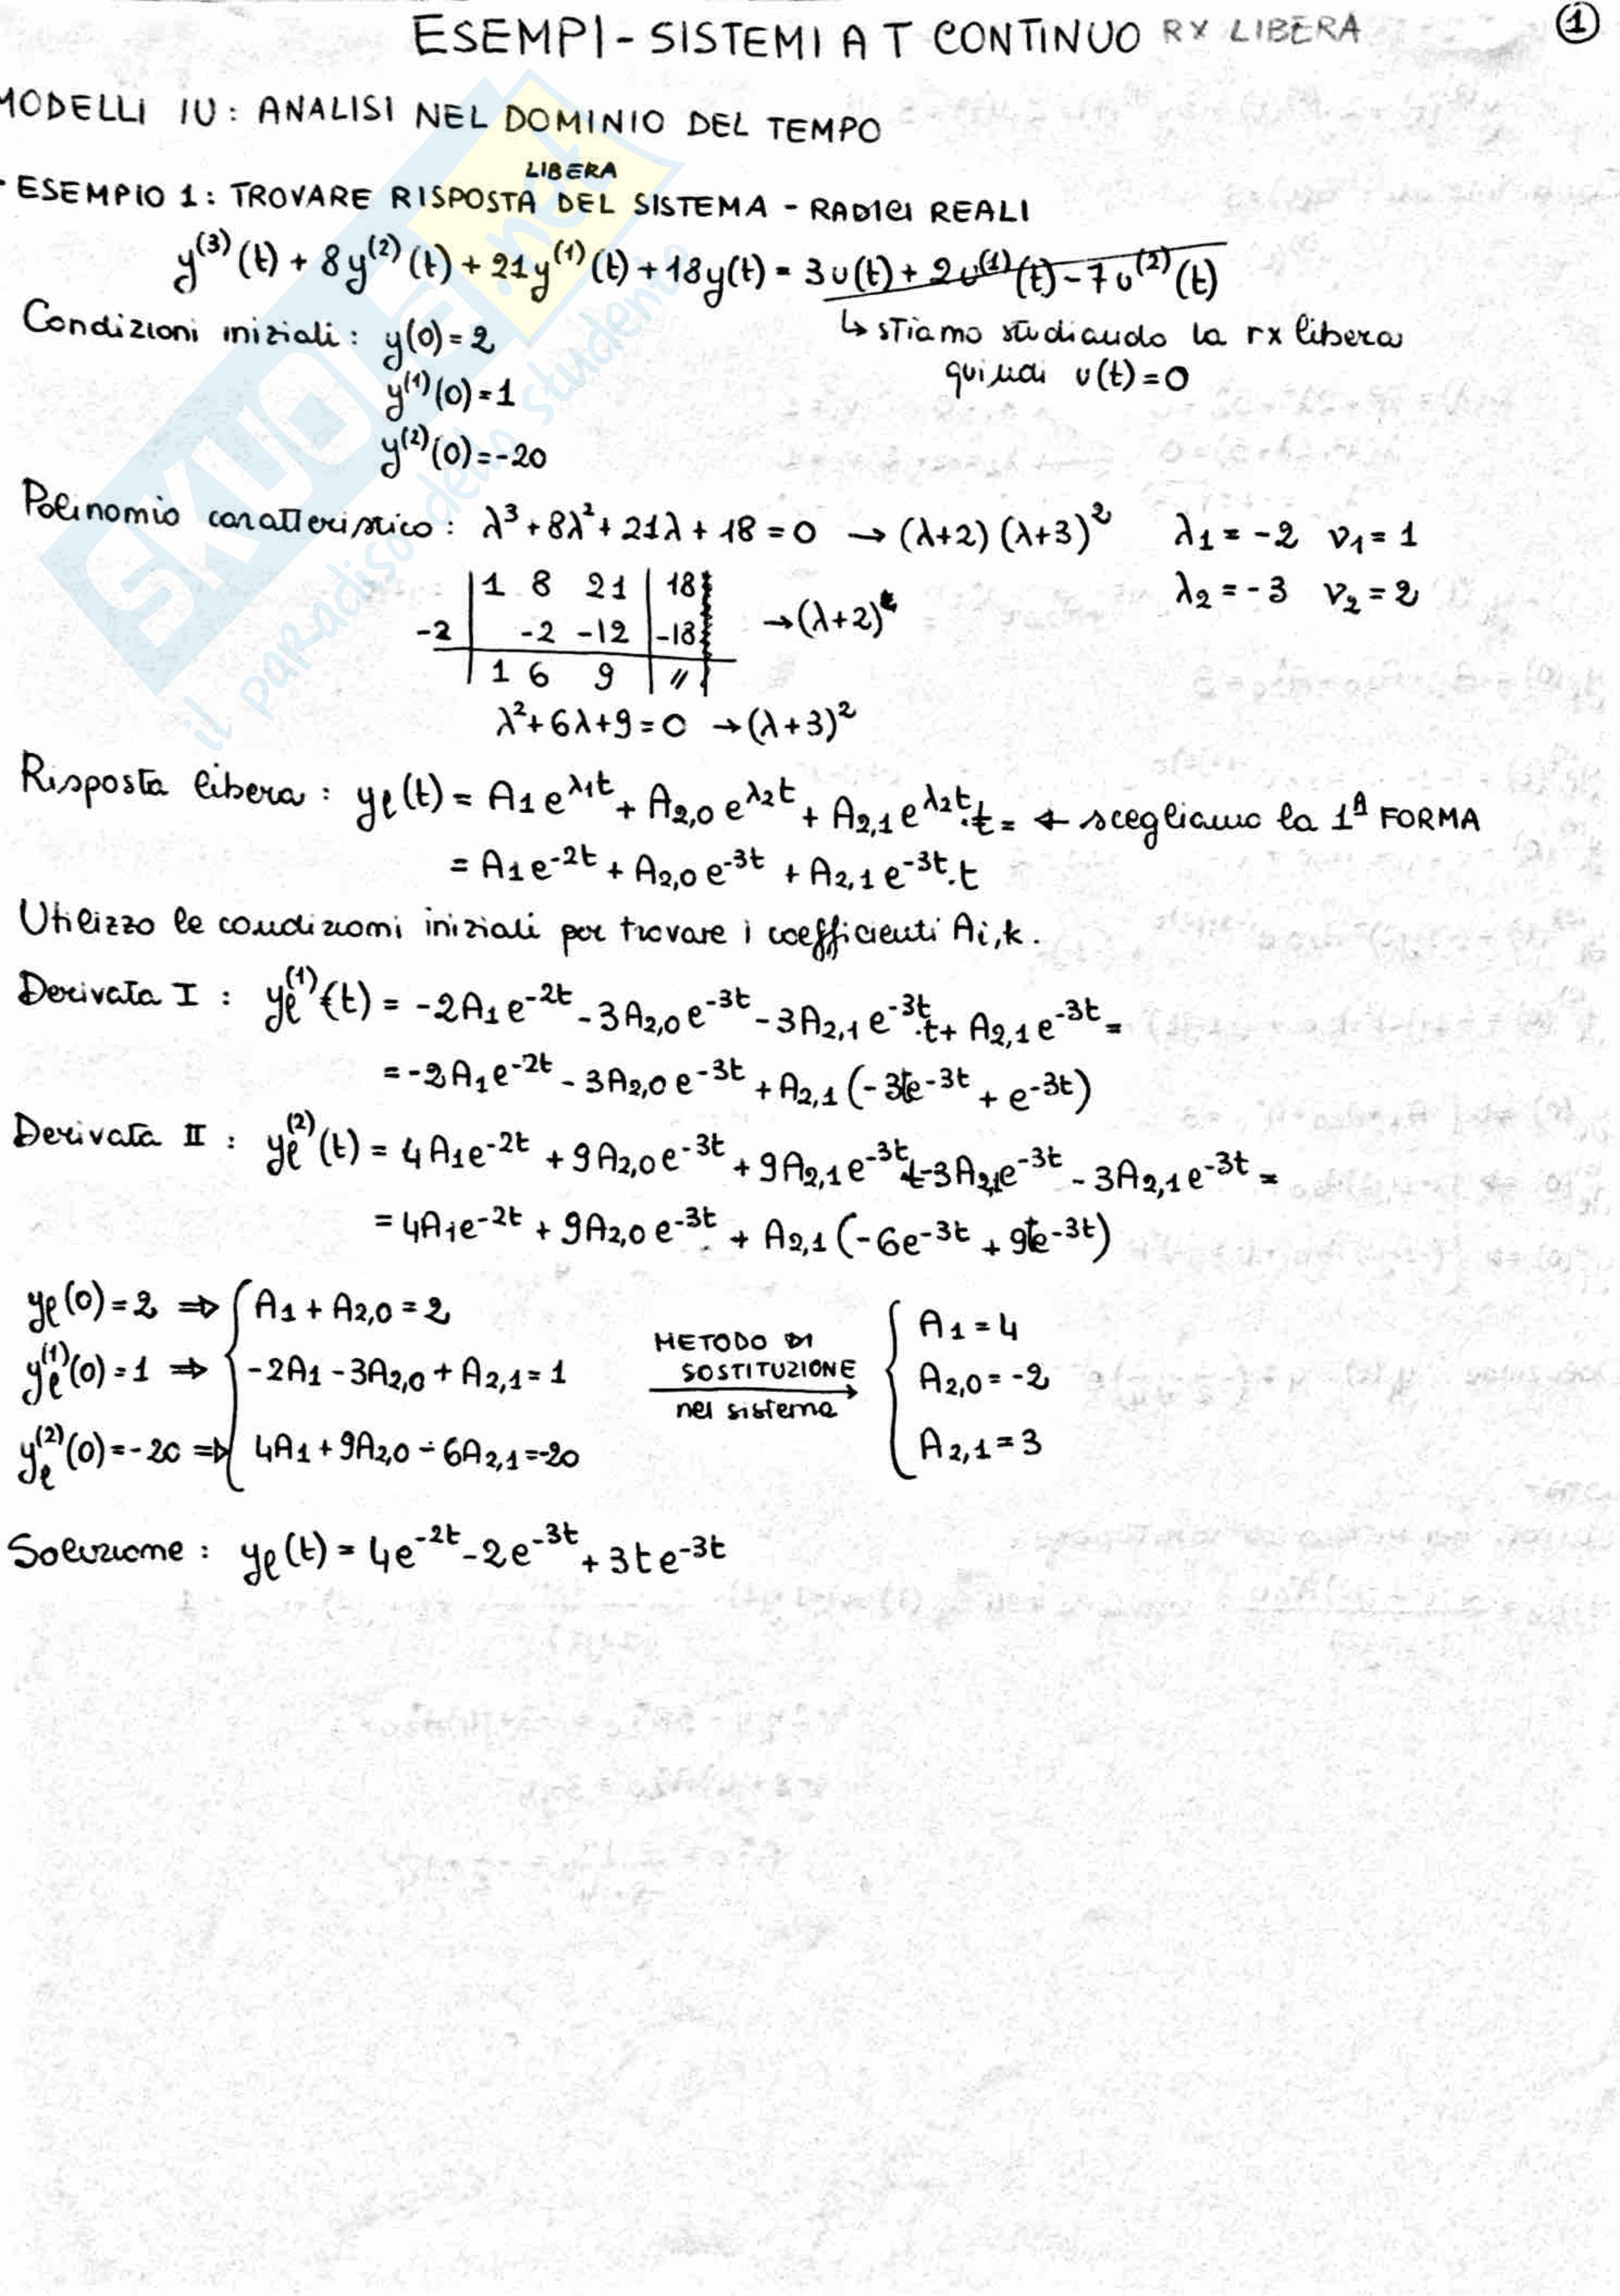 ESEMPI - SISTEMI A T CONTINUO RX LIBERA ①
MODELLI IU: ANALISI NEL DOMINIO DEL TEMPO
LIBERA
· ESEMPIO 1: TROVARE RISPOSTA DEL SISTEMA - RADICI REALI
y⁽³⁾(t) + 8y⁽²⁾(t) + 21y⁽¹⁾(t) + 18y(t) = 3u(t) + 2u⁽¹⁾(t) - 7u⁽²⁾(t)
Condizioni iniziali: y(0) = 2
↳ stiamo studiando la rx libera
y⁽¹⁾(0) = 1
quindi u(t) = 0
y⁽²⁾(0) = -20
Polinomio caratteristico: λ³ + 8λ² + 21λ + 18 = 0 → (λ+2)(λ+3)² λ₁ = -2 ν₁ = 1
λ₂ = -3 ν₂ = 2
1 8 21 | 18
-2 | -2 -12 | -18 → (λ+2)
1 6 9 | //
λ² + 6λ + 9 = 0 → (λ+3)²
Risposta libera: yℓ(t) = A₁e^λ₁t + A₂,₀e^λ₂t + A₂,₁e^λ₂t·t = ← scegliamo la 1ª FORMA
= A₁e^-2t + A₂,₀e^-3t + A₂,₁e^-3t·t
Utilizzo le condizioni iniziali per trovare i coefficienti Ai,k.
Derivata I: yℓ⁽¹⁾(t) = -2A₁e^-2t - 3A₂,₀e^-3t - 3A₂,₁e^-3t·t + A₂,₁e^-3t =
= -2A₁e^-2t - 3A₂,₀e^-3t + A₂,₁(-3te^-3t + e^-3t)
Derivata II: yℓ⁽²⁾(t) = 4A₁e^-2t + 9A₂,₀e^-3t + 9A₂,₁e^-3t t - 3A₂,₁e^-3t - 3A₂,₁e^-3t =
= 4A₁e^-2t + 9A₂,₀e^-3t + A₂,₁(-6e^-3t + 9te^-3t)
yℓ(0) = 2 ⇒ { A₁ + A₂,₀ = 2
yℓ⁽¹⁾(0) = 1 ⇒ { -2A₁ - 3A₂,₀ + A₂,₁ = 1
yℓ⁽²⁾(0) = -20 ⇒ { 4A₁ + 9A₂,₀ - 6A₂,₁ = -20
METODO DI
SOSTITUZIONE
nel sistema
{ A₁ = 4
A₂,₀ = -2
A₂,₁ = 3
Soluzione: yℓ(t) = 4e^-2t - 2e^-3t + 3te^-3t
SKUOLA.net
il paradiso dello studente